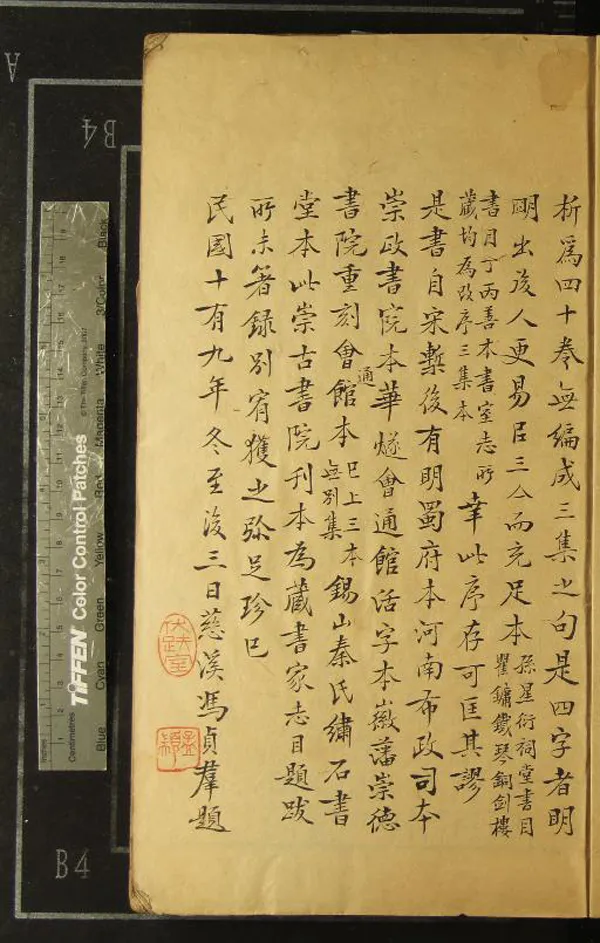 析為四十卷無編成三集之句是四字者明
明出後人更易臣三厶而充足本孫星衍祠堂書目
瞿鏞鐵琴銅劍樓
書目丁丙善本書室志所
藏均為改序三集本幸此序存可匡其謬
是書自宋槧後有明蜀府本河南布政司本
崇政書院本華燧會通館活字本徽藩崇德
書院重刻會通館本已上三本
無別集錫山秦氏繡石書
堂本此崇古書院刊本為藏書家志目題跋
所未著錄別宥獲之弥足珍已
民國十有九年冬至後三日慈溪馮貞羣題
伏跗室
孟顓
A
B4
B4
Inches
Centimetres
TIFFEN Color Control Patches
© The Tiffen Company, 2007
Blue
Cyan
Green
Yellow
Red
Magenta
White
3/Color
Black